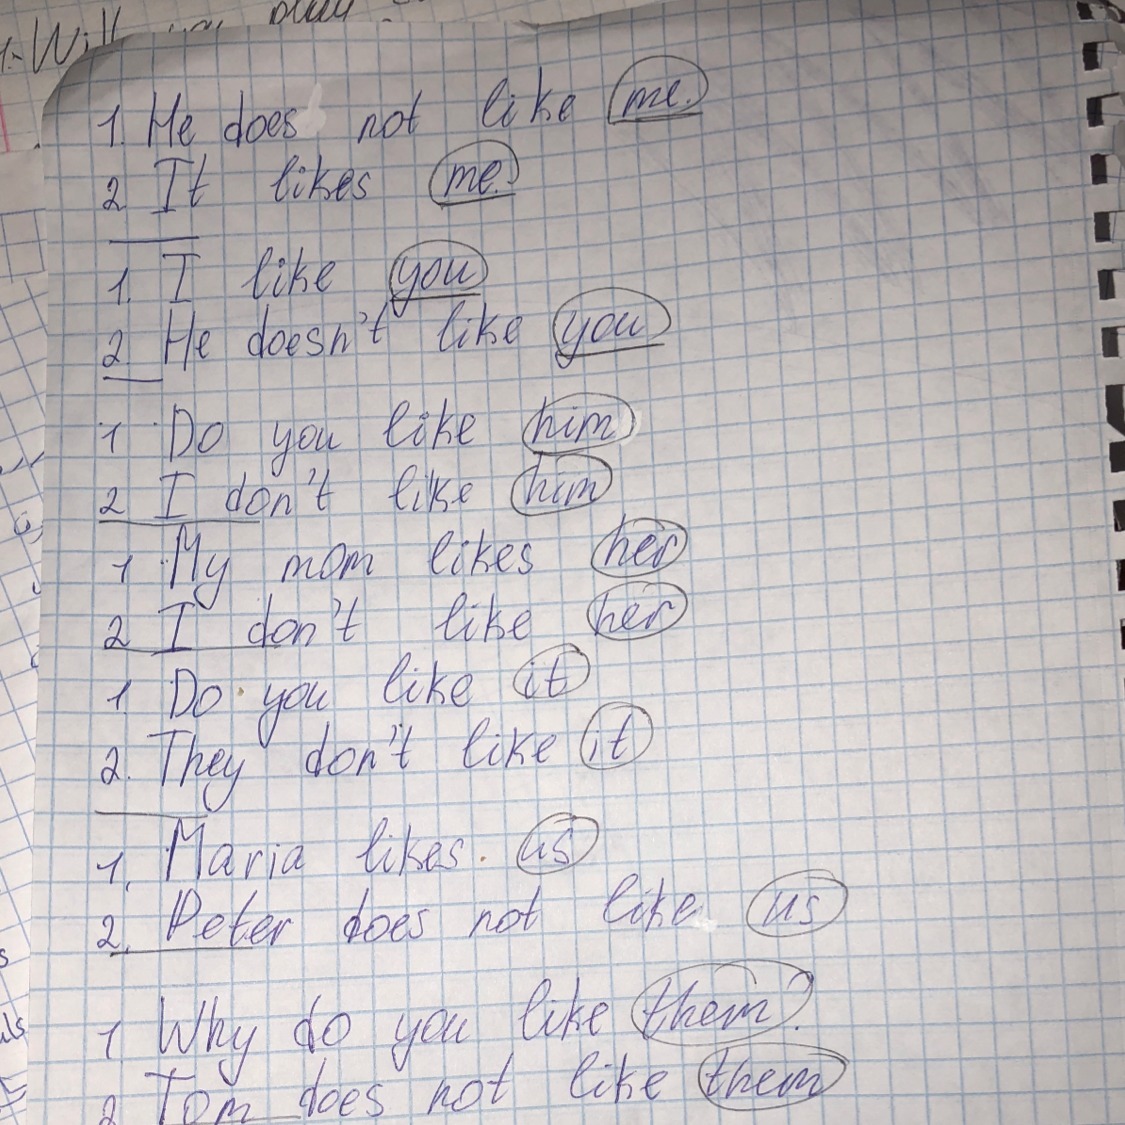 1. Will you play
1. He does not like me.
2 It likes me.
1. I like you
2. He doesn't like you
1 Do you like him
2 I don't like him
1 My mom likes her
2 I don't like her
1. Do you like it
2. They don't like it
1. Maria likes. us
2. Peter does not like us
1 Why do you like them?
2 Tom does not like them